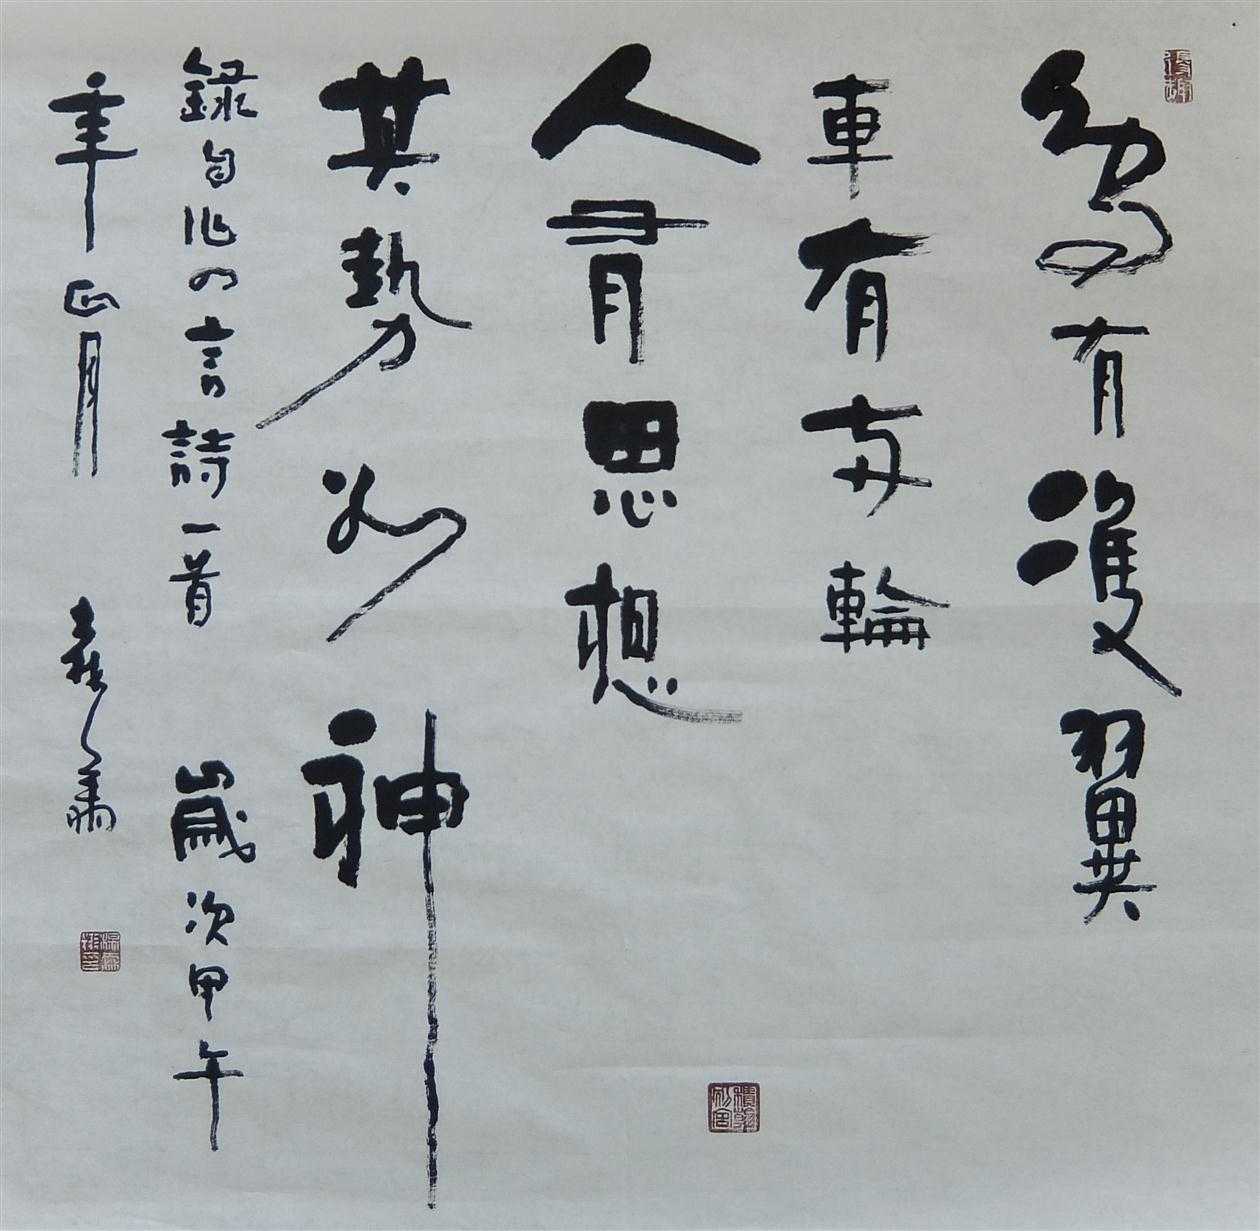 鳥有雙翼
車有兩輪
人有思想
其勢如神
錄自作四言詩一首 歲次甲午
年正月